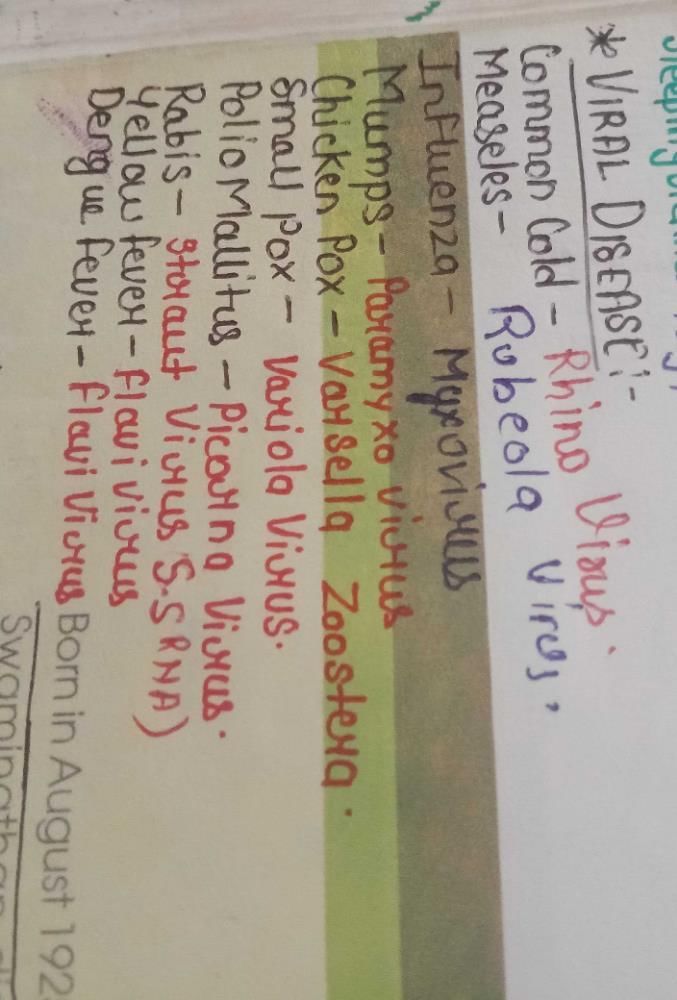 * VIRAL DISEASE:-
Common Cold - Rhino Virus.
Measeles - Rubeola Virus.
Influenza - Myxovirus
Mumps - Paramyxo virus
Chicken Pox - Varsella Zoostera.
Small Pox - Variola Virus.
Polio Mallitus - Picorna Virus.
Rabis - straut Virus S.S RNA)
Yellow fever - flavi virus
Dengue fever - flavi Virus
Born in August 192